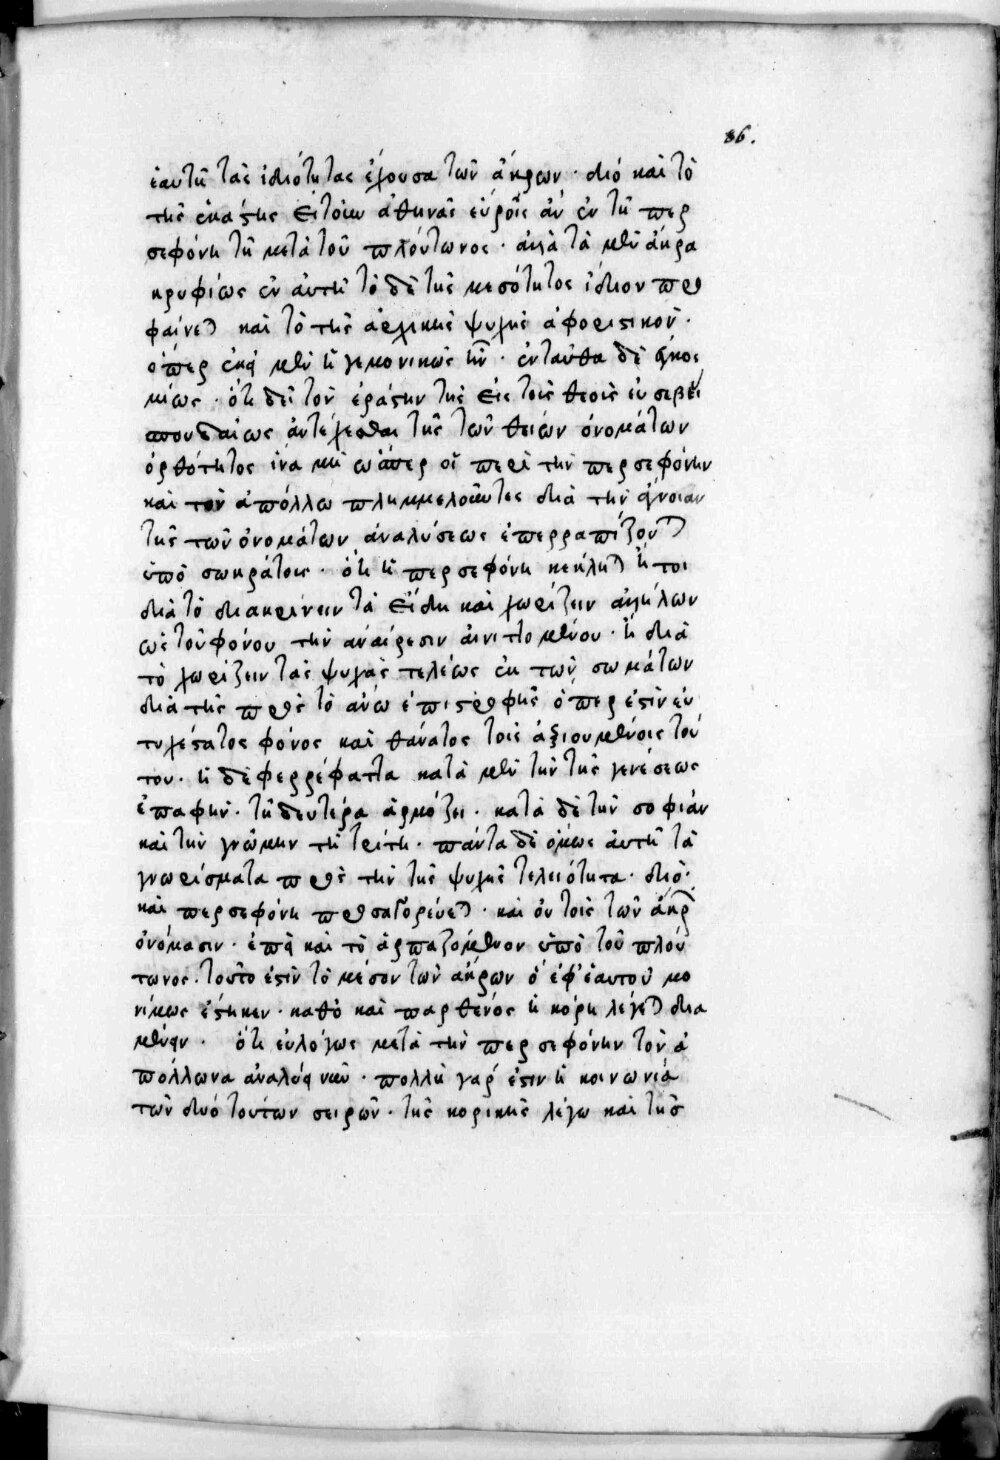 86.
ἑαυτῇ τὰς ἰδιότητας ἔχουσα τῶν ἄκρων· διό καὶ τὸ
τῆς ἑκάτης εὕροις ἂν ἐν τῇ περ
σεφόνῃ τῇ μετὰ τοῦ πλούτωνος· ἀλλὰ τὰ μὲν ἄκρα
κρυφίως ἐν αὐτῇ τὸ δὲ τῆς μεσότητος ἴδιον προ
φαίνεται καὶ τὸ τῆς ἀρχικῆς ψυχῆς ἀφοριστικόν·
ὅπερ ἐκεῖ μὲν ἡγεμονικῶς ἦν· ἐνταῦθα δὲ
μίως· ὅτι δεῖ τὸν ἐραστὴν τῆς εἰς τοὺς θεοὺς εὐσεβεί
σπουδαίως ἀντέχεσθαι τῆς τῶν θείων ὀνομάτων
ὀρθότητος ἵνα μὴ ὥσπερ οἱ περὶ τὴν περσεφόνην
καὶ τὸν ἀπόλλω πλημμελοῦντες διὰ τὴν ἄγνοιαν
τῆς τῶν ὀνομάτων ἀναλύσεως ἐπερραπίζοντο
ὑπὸ σωκράτους· ὅτι ἡ περσεφόνη κέκληται ἤτοι
διὰ τὸ διακρίνειν τὰ εἴδη καὶ χωρίζειν ἀλλήλων
ὡς τοῦ φόνου τὴν ἀναίρεσιν αἰνιττομένου· ἢ διὰ
τὸ χωρίζειν τὰς ψυχὰς τελέως ἐκ τῶν σωμάτων
διὰ τῆς πρὸς τὸ ἄνω ἐπιστροφῆς ὅπερ ἐστὶν εὐ
τυχέστατος φόνος καὶ θάνατος τοῖς ἀξιουμένοις τού
του· ἡ δὲ φερρέφαττα κατὰ μὲν τὴν τῆς γενέσεως
ἐπαφὴν· τῇ δευτέρᾳ ἁρμόζει· κατὰ δὲ τὴν σοφίαν
καὶ τὴν γνώμην τῇ τρίτῃ· πάντα δὲ ὅμως αὐτῇ τὰ
γνωρίσματα πρὸς τὴν τῆς ψυχῆς τελειότητα· διό·
καὶ περσεφόνη προσαγορεύεται· καὶ οὐ τοῖς τῶν ἄκρων
ὀνόμασιν· ἐπεὶ καὶ τὸ ἁρπαζόμενον ὑπὸ τοῦ πλού
τωνος τοῦτο ἐστὶν τὸ μέσον τῶν ἄκρων ἐφ' ἑαυτοῦ μο
νίμως ἑστηκεν· καθὸ καὶ παρθένος ἡ κόρη λέγεται δια
μένειν· ὅτι εὐλόγως μετὰ τὴν περσεφόνην τὸν ἀ
πόλλωνα ἀναλύει νῦν· πολλὴ γὰρ ἐστιν ἡ κοινωνία
τῶν δυὸ τούτων σειρῶν· τῆς κορικῆς λέγω καὶ τῆς